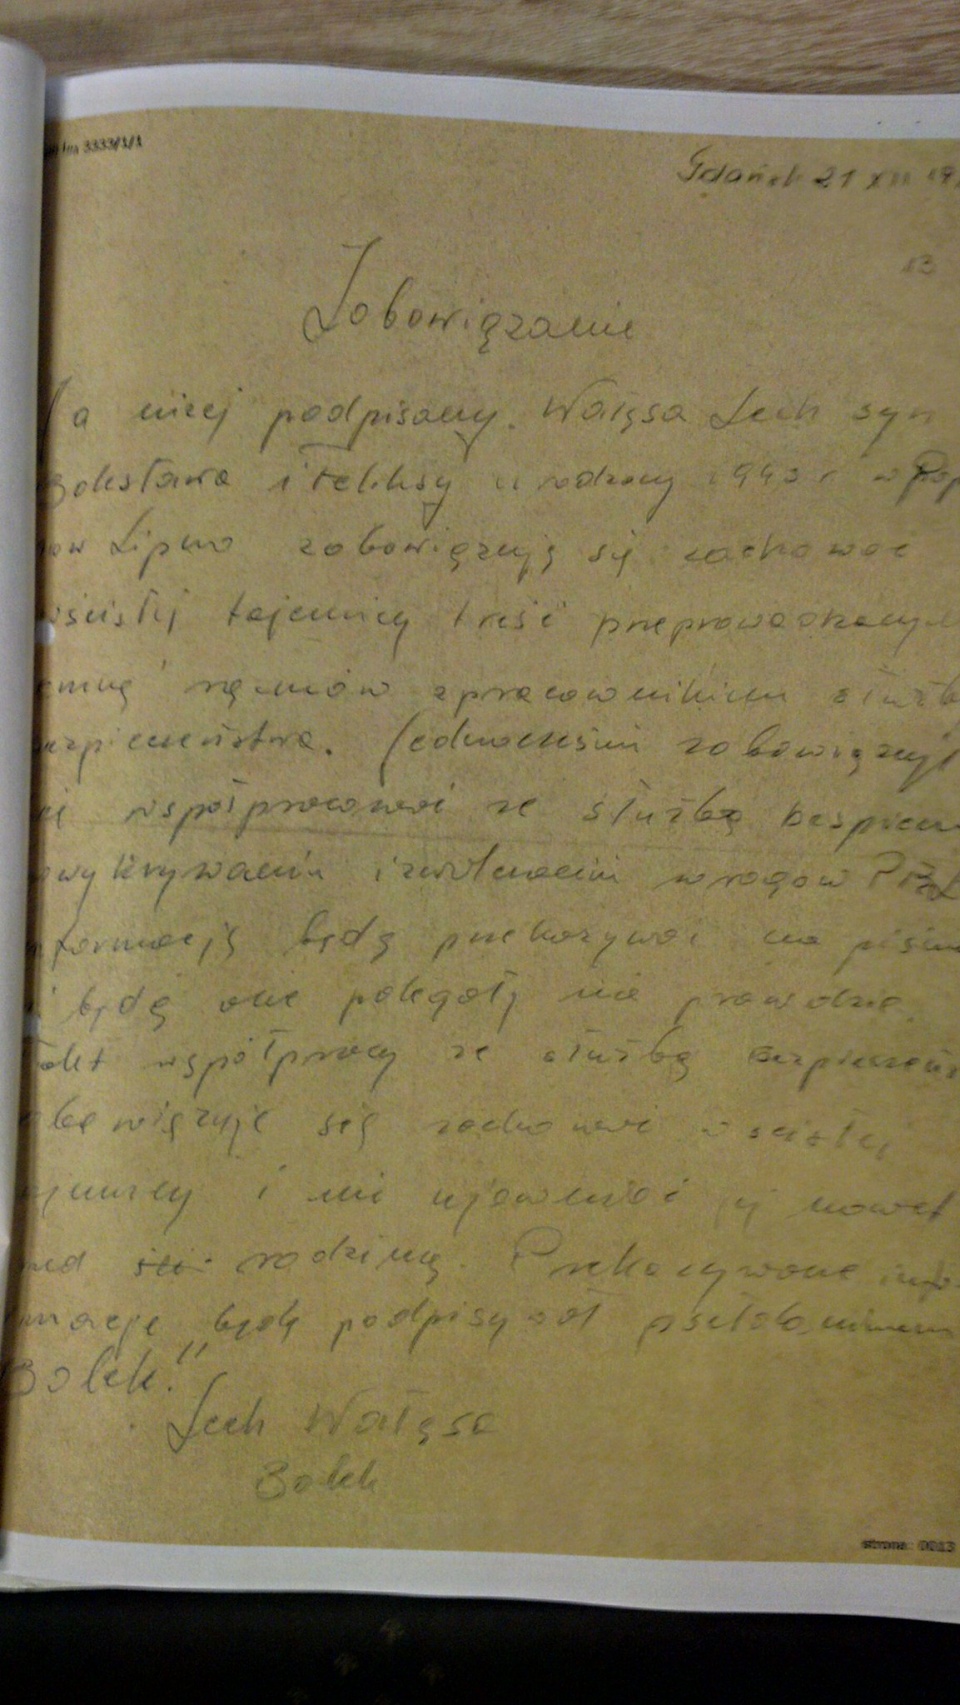 3333/1/1
Gdańsk 21 XII 19
13
Zobowiązanie
Ja niżej podpisany. Wałęsa Lech syn
Bolesława i Feliksy urodzony 1943 r w Pop
ow Lipno zobowiązują się zachować
wścisłej tajemnicy treść przeprowadzonych
emną rozmów z pracownikiem służb
ezpieczeństwa. Jednocześnie zobowiązuję
się współpracować ze służbą bespiecz
wykrywaniu i zwalczaniu wrogów PRL
nformację będę przekazywać na piśmie
i będą one polegały na prawdzie.
akt współpracy ze służbą Bezpieczeńs
obowiązuję się zachować w ścisłej
ajemnicy i nie ujawniać jej nawet
zed rodziną. Przekazywane info-
macje będę podpisywał psełdonimem
Bolek."
Lech Wałęsa
Bolek
strona: 0013